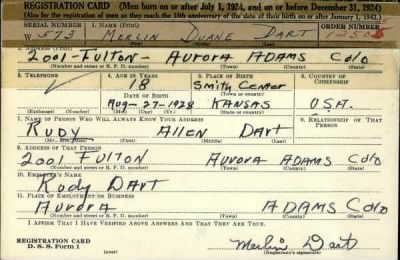 REGISTRATION CARD—(Men born on or after July 1, 1924, and on or before December 31, 1924)
(Also for the registration of men as they reach the 18th anniversary of the date of their birth on or after January 1, 1943.)
SERIAL NUMBER 1. NAME (Print) ORDER NUMBER
W 573 MERLIN DUANE DART
2001 FULTON - AURORA ADAMS COLO
(Number and street or R. F. D. number) (Town) (County) (State)
3. TELEPHONE 4. AGE IN YEARS 5. PLACE OF BIRTH 6. COUNTRY OF CITIZENSHIP
18 SMITH CENTER
DATE OF BIRTH (Town or county)
AUG-27-1928 KANSAS U.S.A.
(Exchange) (Number) (Mo.) (Day) (Yr.) (State or country)
7. NAME OF PERSON WHO WILL ALWAYS KNOW YOUR ADDRESS 8. RELATIONSHIP OF THAT PERSON
RUDY ALLEN DART
9. ADDRESS OF THAT PERSON
2001 FULTON AURORA ADAMS COLO
(Number and street or R. F. D. number) (Town) (County) (State)
10. EMPLOYER'S NAME
RUDY DART
11. PLACE OF EMPLOYMENT OR BUSINESS
AURORA ADAMS COLO
(Number and street or R. F. D. number) (Town) (County) (State)
I AFFIRM THAT I HAVE VERIFIED ABOVE ANSWERS AND THAT THEY ARE TRUE.
REGISTRATION CARD
D. S. S. Form 1
Merlin Dart
(Registrant's signature)